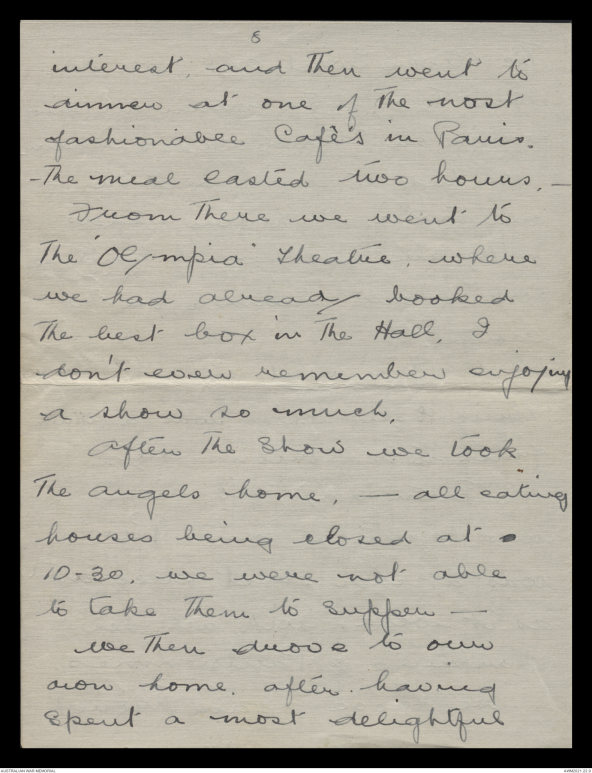 8
interest, and then went to
dinner at one of the most
fashionable Cafè's in Paris.
- The meal lasted two hours. -
From there we went to
the "Olympia" Theatre, where
we had already booked
the best box in the Hall, I
don't ever remember enjoying
a show so much.
After the Show we took
the angels home, - all eating
houses being closed at
10-30, we were not able
to take them to supper -
We then drove to our
own home, after having
spent a most delightful
AUSTRALIAN WAR MEMORIAL